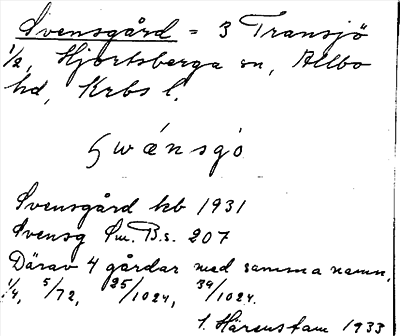 Svensgård = 3 Transjö
1/2, Hjortsberga sn, Allbo
hd, Krbs l.
Swánsgo
Svensgård kb 1931
Svensg Sm. B.s. 207
Därav 4 gårdar med samma namn,
1/4, 5/72, 25/1024, 39/1024.
1933